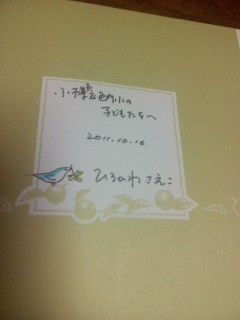 小樽色内小の
子どもたちへ
2011.10.16
ひろかわさえこ